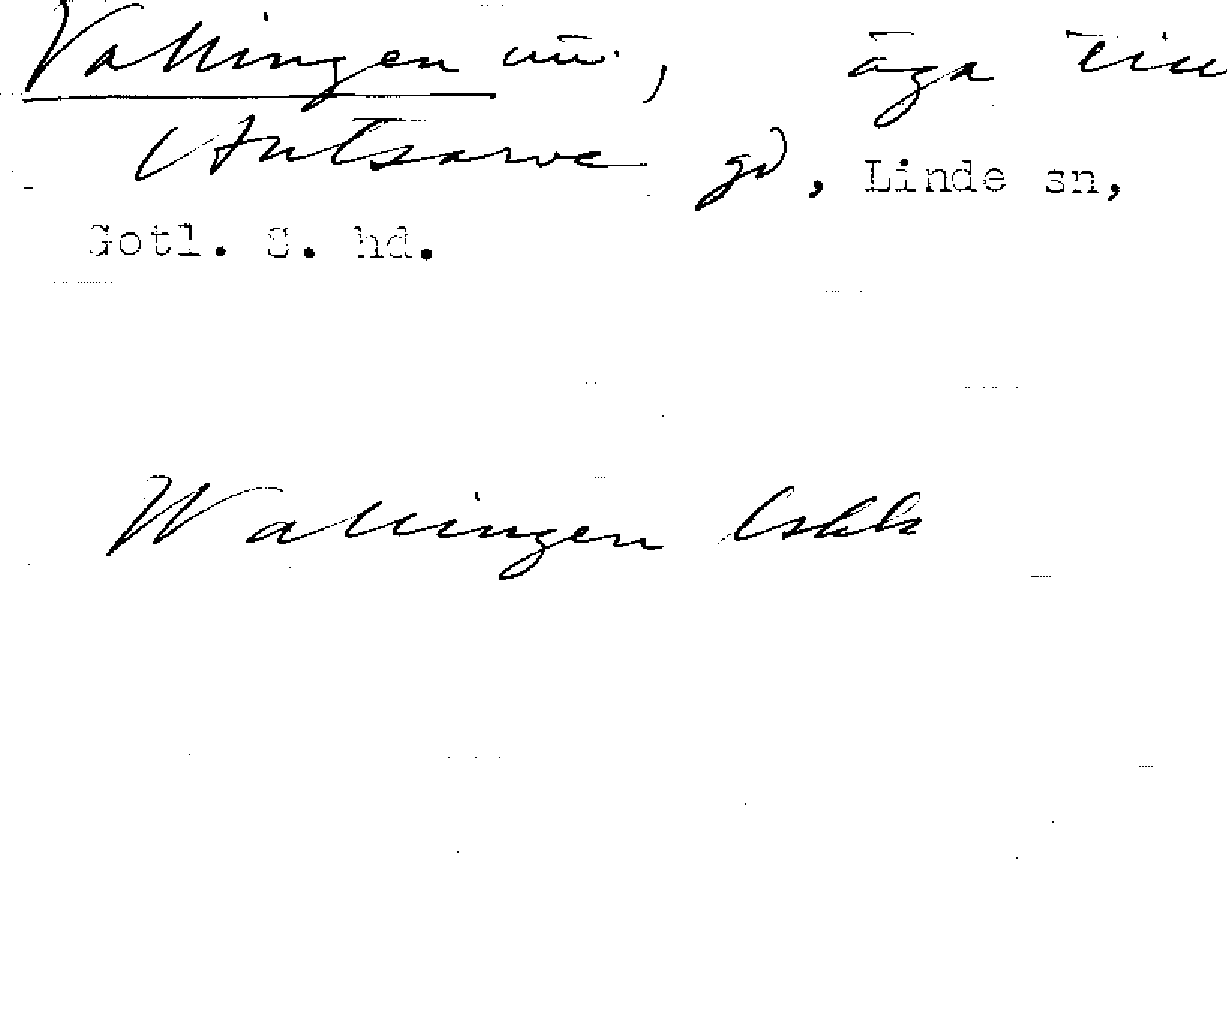 Vallingen , äga till
Antsarve gd, Linde sn,
Gotl. S. hd.
Wallingen